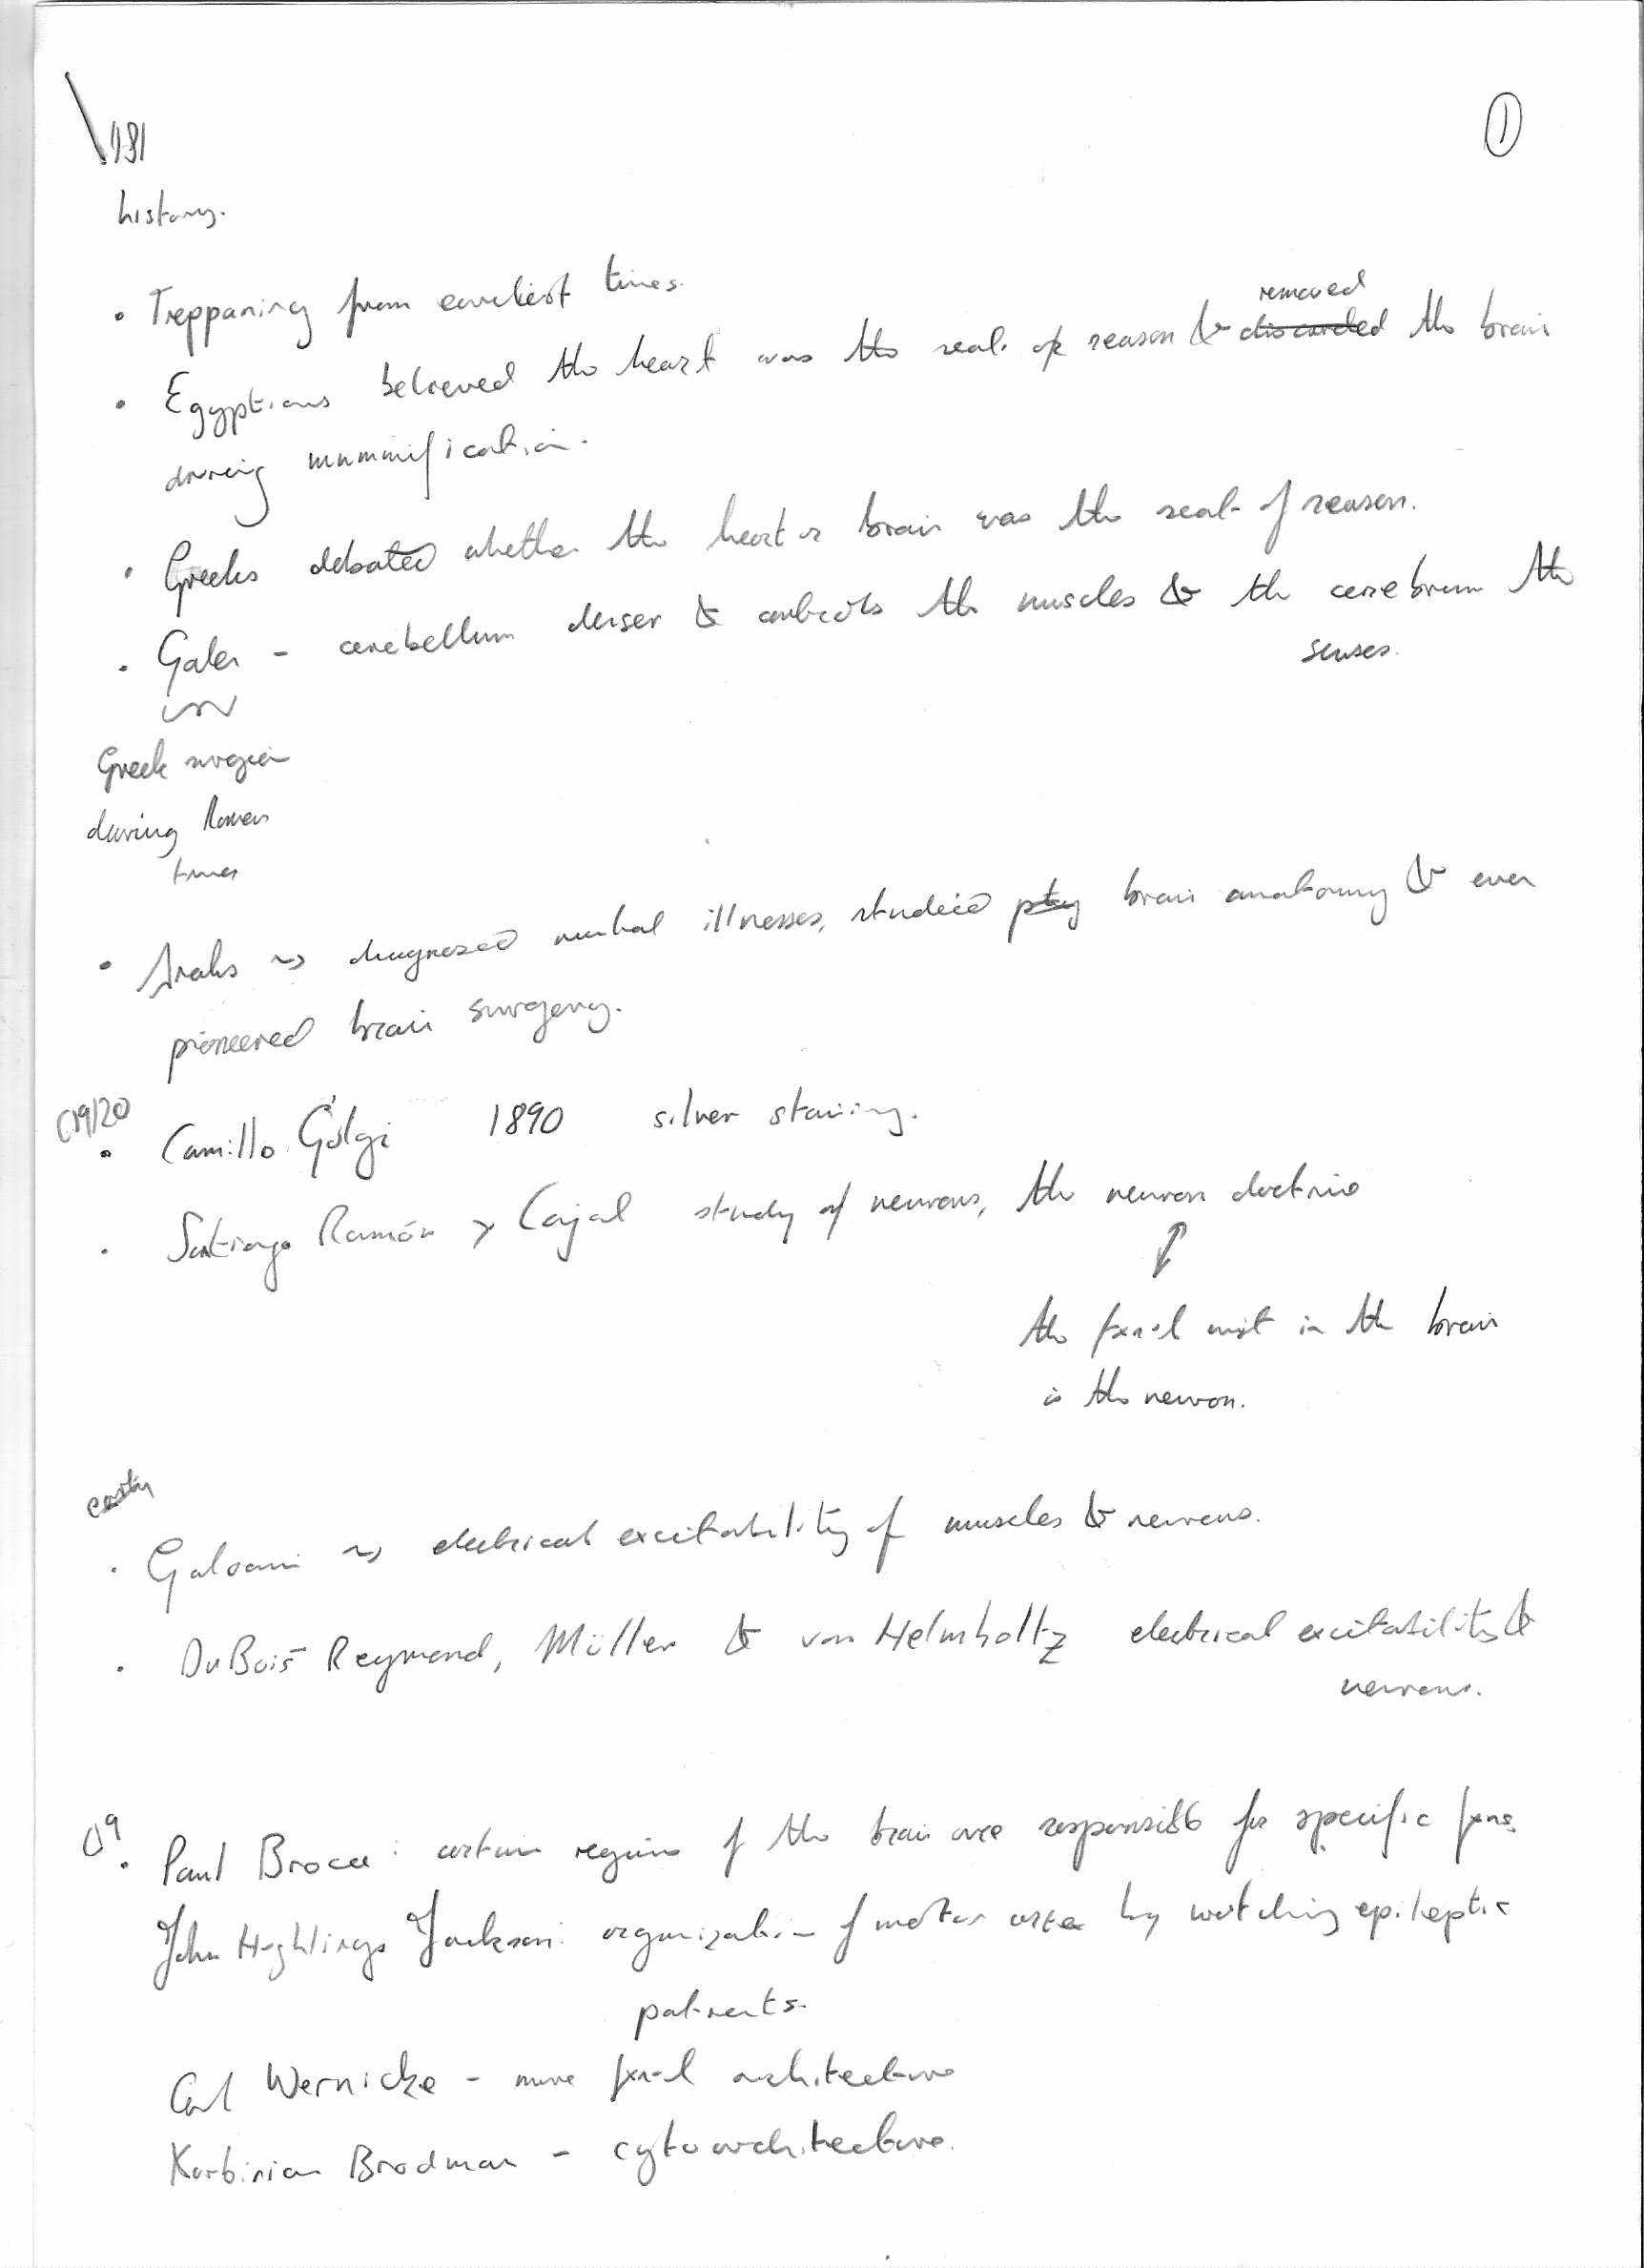 ①
history.
• Treppaning from earliest times.
removed
• Egyptians believed the heart was the seat of reason & discarded the brain
during mummification.
• Greeks debated whether the heart or brain was the seat of reason.
• Galen - cerebellum denser & controls the muscles & the cerebrum the
senses.
Greek surgeon
during Roman
times
• Arabs ⇝ diagnosed mental illnesses, studied brain anatomy & even
pioneered brain surgery.
C19/20
• Camillo Golgi 1890 silver staining.
• Santiago Ramón y Cajal study of neurons, the neuron doctrine
↕
the fxnal unit in the brain
is the neuron.
• Galvani ⇝ electrical excitability of muscles & neurons.
• DuBois Reymond, Müller & von Helmholtz electrical excitability &
neurons.
C19
• Paul Broca: certain regions of the brain are responsible for specific fxns.
John Hughlings Jackson: organization of motor area by watching epileptic
patients.
Carl Wernicke - more fxnal architecture
Korbinian Brodman - cytoarchitecture.